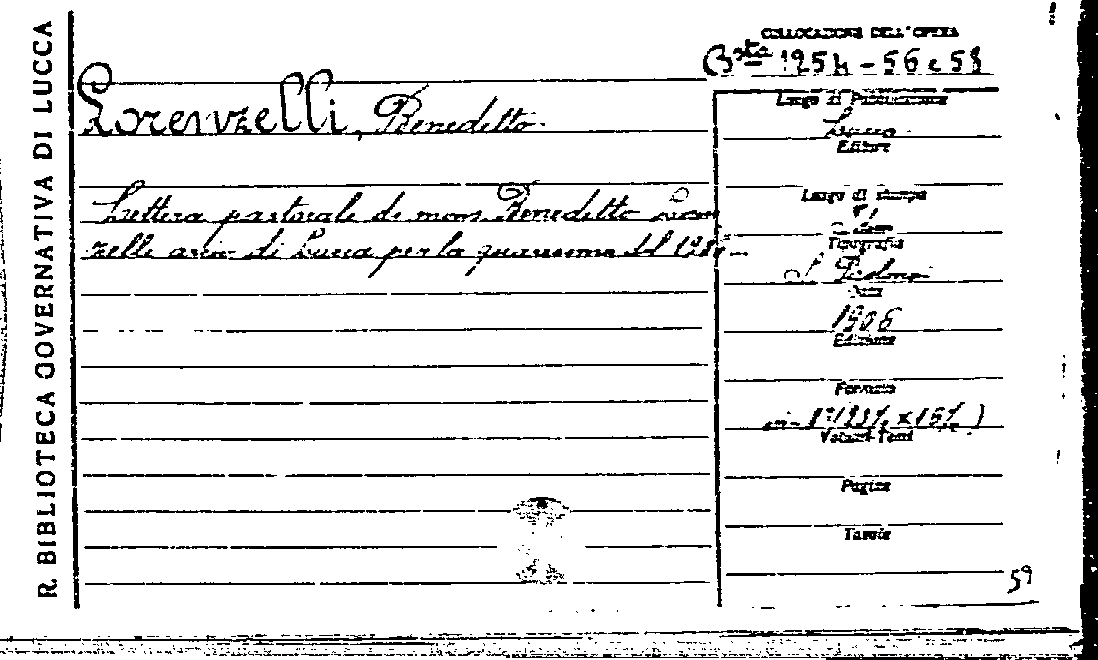 R. BIBLIOTECA GOVERNATIVA DI LUCCA
COLLOCAZIONE DELL'OPERA
Bsta 1254 - 56 e 58
Lorenzelli, Benedetto
Lettera pastorale di mons. Benedetto Loren
zelli arciv. di Lucca per la quaresima del
Luogo di Pubblicazione
Lucca
Editore
Luogo di stampa
Tipografia
Data
1906
Edizione
Formato
Volumi-Tomi
Pagine
Tavole
59